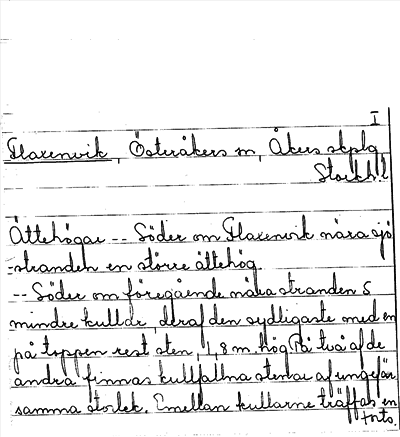 I
Flaxenvik, Österåkers sn, Åkers skplg
Stockh.l
Ättehögar -- Söder om Flaxenvik nära sjö
-stranden en större ättehög.
-- Söder om föregående nära stranden 5
mindre kullar, deraf den sydligaste med en
på toppen rest sten, 1,8 m. hög. På två af de
andra finnas kullfallna stenar af ungefär
samma storlek. Emellan kullarne träffas en
forts.